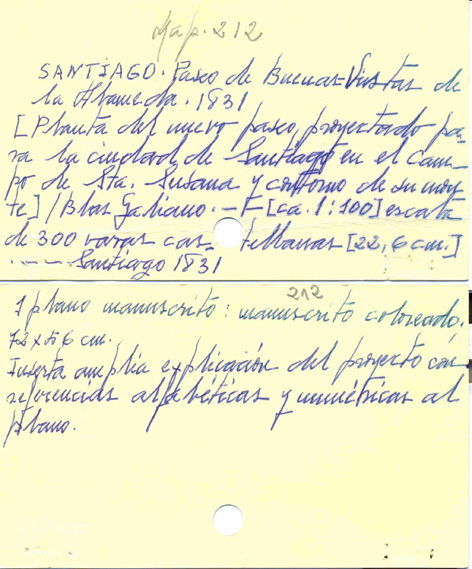 Map. 212
SANTIAGO. Paseo de Buenas=Vistas de
la Alameda. 1831
[Planta del nuevo paseo, proyectado pa-
ra la ciudad de Santiago en el Cam-
po de Sta. Susana y contorno de su nor-
te] / Blas Galiano. - E [ca. 1:100] escala
de 300 varas cas= tellanas [22,6 cm.]
. - - - Santiago 1831
212
1 plano manuscrito: manuscrito coloreado.
72 x 56 cm.
Inserta amplia explicación del proyecto con
referencias alfabéticas y numéricas al
plano.